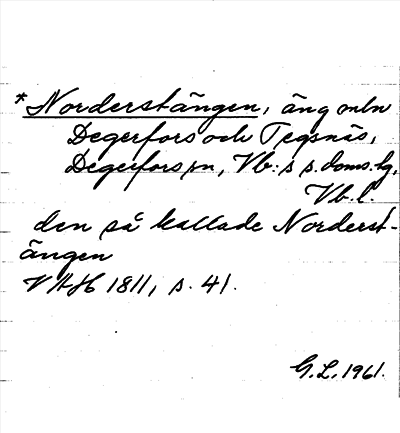 *Norderstängen, äng mln
Degerfors och Tegsnäs,
Degerfors sn, Vb:s s. doms.hg,
Vb. l.
den så kallade Norderst-
ängen
VAH 1811, s. 41.
G.L. 1961.